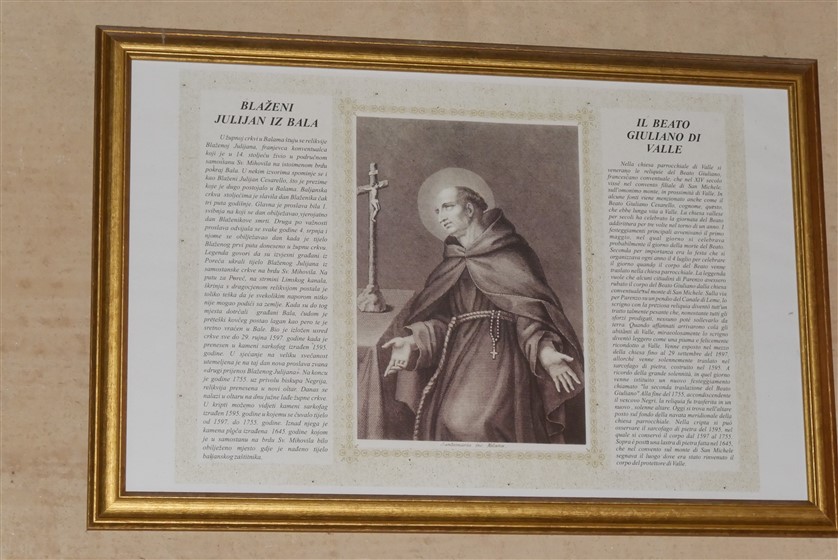 BLAŽENI
JULIJAN IZ BALA
U župnoj crkvi u Balama štuju se relikvije
Blaženog Julijana, franjevca konventualca
koji je u 14. stoljeću živio u područnom
samostanu Sv. Mihovila na istoimenom brdu
pokraj Bala. U nekim izvorima spominje se i
kao Blaženi Julijan Cesarello, što je prezime
koje je dugo postojalo u Balama. Baljanska
crkva stoljećima je slavila dan Blaženika čak
tri puta godišnje. Glavna je proslava bila 1.
svibnja na koji se dan obilježavao vjerojatno
dan Blaženikove smrti. Druga po važnosti
proslava odvijala se svake godine 4. srpnja i
njome se obilježavao dan kada je tijelo
Blaženog prvi puta doneseno u župnu crkvu.
Legenda govori da su izvjesni građani iz
Poreča ukrali tijelo Blaženog Julijana iz
samostanske crkve na brdu Sv. Mihovila. Na
putu za Poreč, na strmini Limskog kanala,
škrinja s dragocjenom relikvijom postala je
toliko teška da je svekolikim naporom nitko
nije mogao podići sa zemlje. Kada su do tog
mjesta dotrčali građani Bala, čudom je
preteški kovčeg postao lagan kao pero te je
sretno vraćen u Bale. Bio je izložen usred
crkve sve do 29. rujna 1597. godine kada je
prenesen u kameni sarkofag izrađen 1595.
godine. U sjećanje na veliku svečanost
utemeljena je na taj dan nova proslava zvana
«drugi prijenos Blaženog Julijana». Na koncu
je godine 1755. uz privolu biskupa Negrija,
relikvija prenesena u novi oltar. Danas se
nalazi u oltaru na dnu južne lađe župne crkve.
U kripti možemo vidjeti kameni sarkofag
izrađen 1595. godine u kojemu se čuvalo tijelo
od 1597. do 1755. godine. Iznad njega je
kamena ploča izrađena 1645. godine kojom
je u samostanu na brdu Sv. Mihovila bilo
obilježeno mjesto gdje je nađeno tijelo
baljanskog zaštitnika.
IL BEATO
GIULIANO DI
VALLE
Nella chiesa parrocchiale di Valle si
venerano le reliquie del Beato Giuliano,
francescano conventuale, che nel XIV secolo
visse nel convento filiale di San Michele,
sull'omonimo monte, in prossimità di Valle. In
alcune fonti viene menzionato anche come il
Beato Giuliano Cesarello, cognome, questo,
che ebbe lunga vita a Valle. La chiesa vallese
per secoli ha celebrato la giornata del Beato
addirittura per tre volte nel corso di un anno. I
festeggiamenti principali avvenivano il primo
maggio, nel qual giorno si celebrava
probabilmente il giorno della morte del Beato.
Seconda per importanza era la festa che si
organizzava ogni anno il 4 luglio per celebrare
il giorno quando il corpo del Beato venne
traslato nella chiesa parrocchiale. La leggenda
vuole che alcuni cittadini di Parenzo avessero
rubato il corpo del Beato Giuliano dalla chiesa
conventuale sul monte di San Michele. Sulla via
per Parenzo su un pendio del Canale di Leme, lo
scrigno con la preziosa reliquia diventò tutt'un
tratto talmente pesante che, nonostante tutti gli
sforzi prodigati, nessuno poté sollevarlo da
terra. Quando affannati arrivarono colà gli
abitanti di Valle, miracolosamente lo scrigno
diventò leggero come una piuma e felicemente
ricondotto a Valle. Venne esposto nel mezzo
della chiesa fino al 29 settembre del 1597,
allorché venne solennemente traslato nel
sarcofago di pietra, costruito nel 1595. A
ricordo della grande solennità, in quel giorno
venne istituito un nuovo festeggiamento
chiamato "la seconda traslazione del Beato
Giuliano". Alla fine del 1755, accondiscendente
il vescovo Negri, la reliquia fu trasferita in un
nuovo , solenne altare. Oggi si trova nell'altare
posto sul fondo della navata meridionale della
chiesa parrocchiale. Nella cripta si può
osservare il sarcofago di pietra del 1595, nel
quale si conservò il corpo dal 1597 al 1755.
Sopra è posta una lastra di pietra fatta nel 1645,
che nel convento sul monte di San Michele
segnava il luogo dove era stato rinvenuto il
corpo del protettore di Valle.